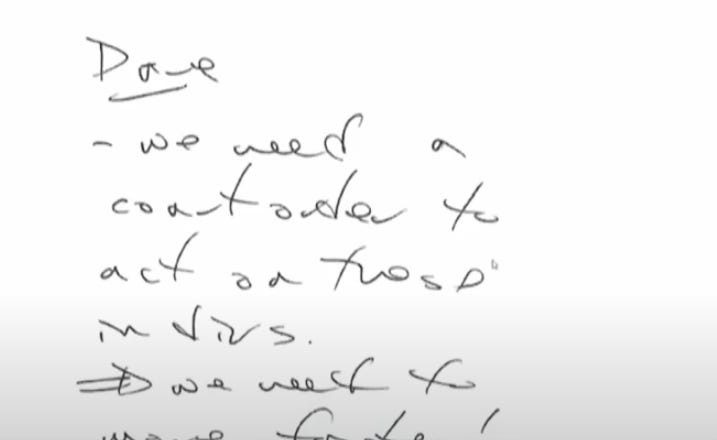 Dave
- we need a
court order to
act on those
indivs.
⇒ we need to
move faster!